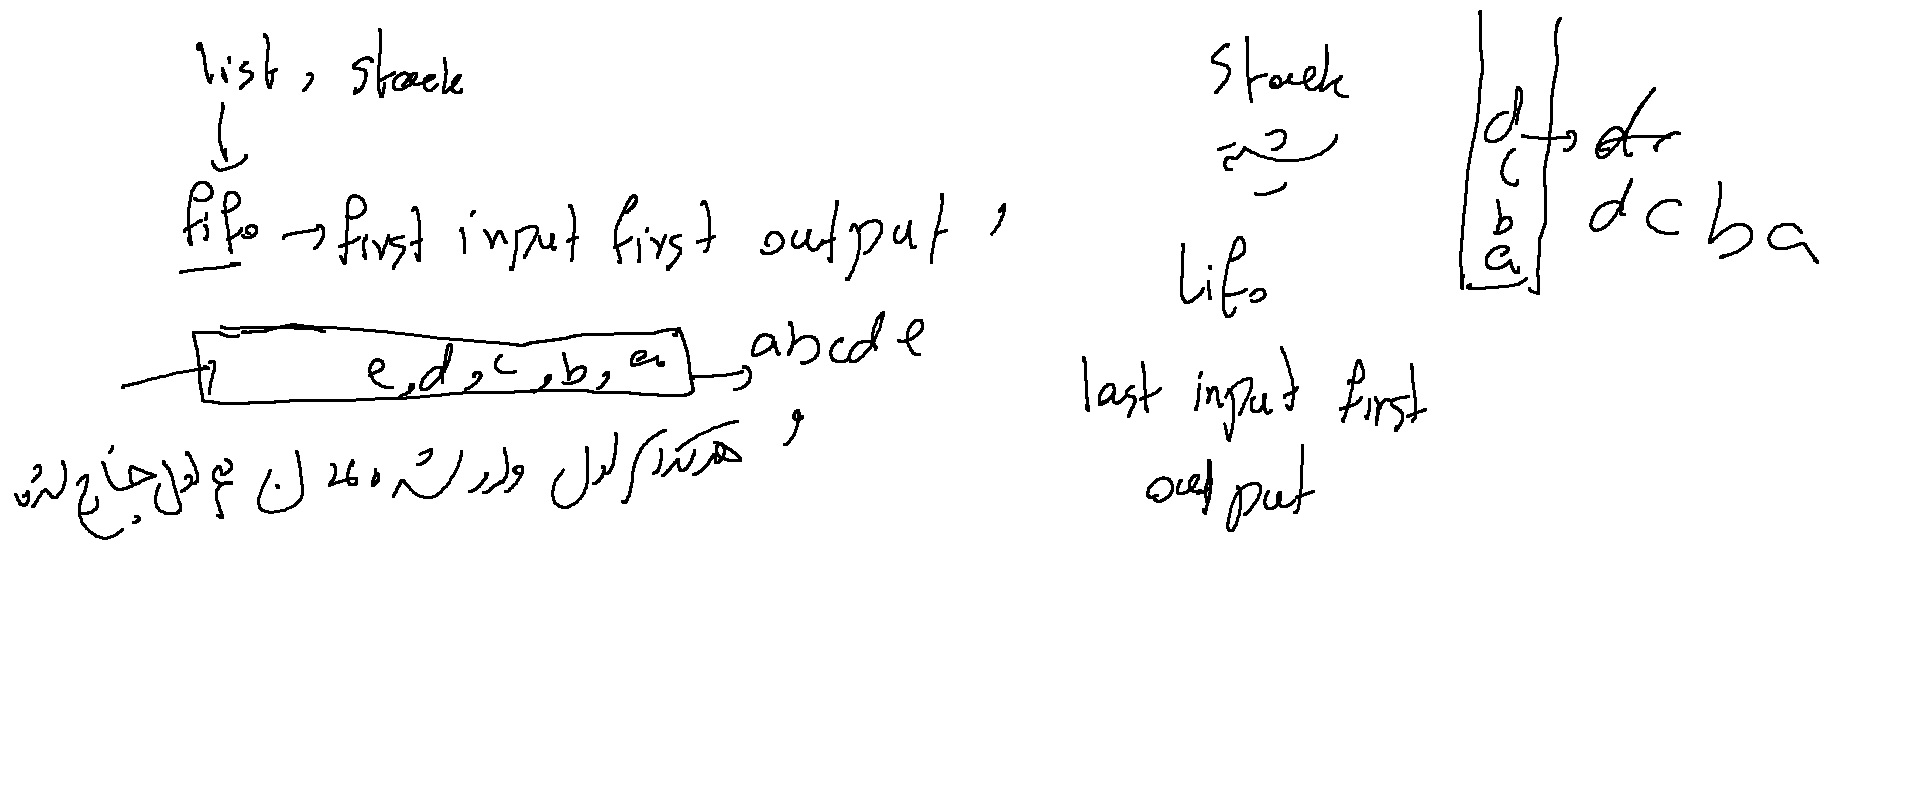 list, stack
fifo → first input first output,
e, d, c, b, a → abcde
اول وارد شده
stack
lifo
last input first
output
d → d
c
b
a
d c b a